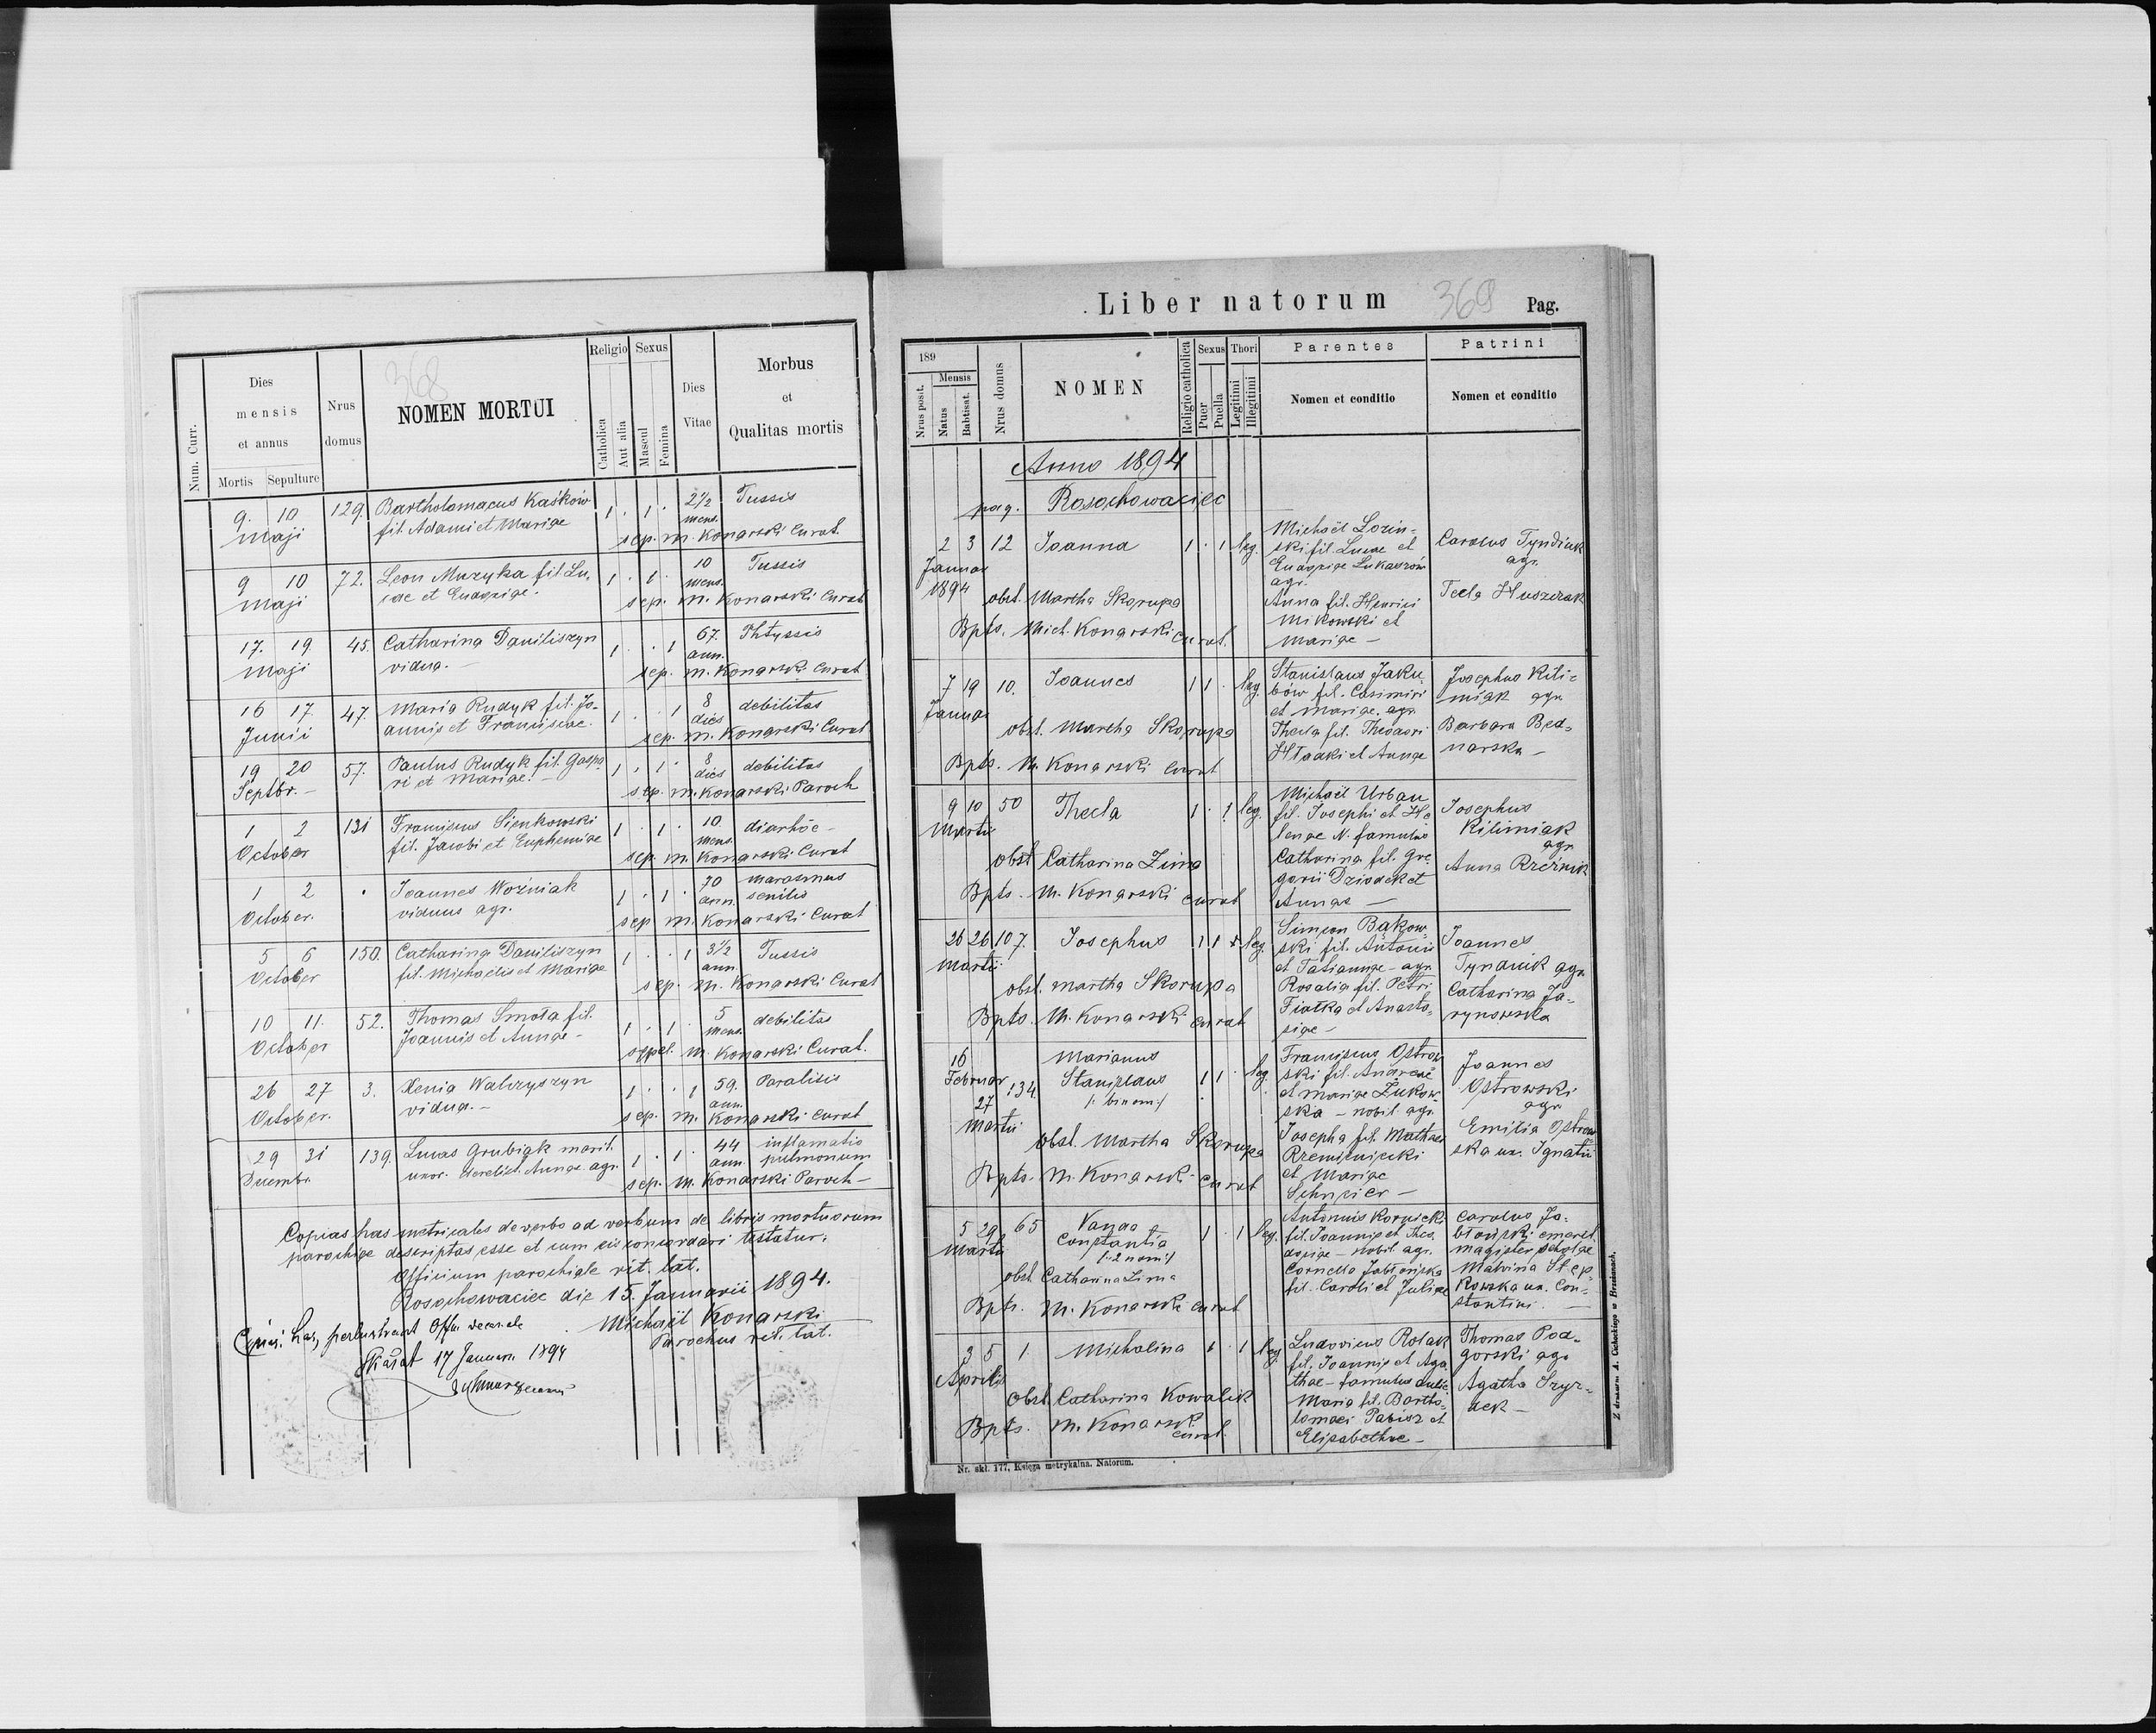 368
Num. Curr.
Dies mensis et annus
Mortis Sepulture
Nrus domus
NOMEN MORTUI
Religio
Catholica
Aut alia
Sexus
Mascul
Femina
Dies Vitae
Morbus et Qualitas mortis
9. 10 129. Bartholomaeus Kaśków 1 . 1 . 2 1/2 Tussis
maji fil. Adami et Mariae mens.
sep. M. Konarski Curat.
9 10 72. Leon Muzyka fil Lu- 1 . 1 . 10 Tussis
maji cae et Eudoxiae. mens.
sep. M. Konarski Curat
17. 19. 45. Catharina Daniliszyn 1 . . 1 67. Phtyssis
maji vidua. ann.
sep. M. Konarski Curat
16 17. 47. Maria Rudyk fil. Jo- 1 . . 1 8 debilitas
Junii annis et Franciscae. dies
sep. M. Konarski Curat
19 20 57. Paulus Rudyk fil. Gaspa- 1 . 1 . 8 debilitas
Septbr. ri et Mariae. dies
sep. M. Konarski Paroch
1 2 131 Franciscus Sienkowski 1 . 1 . 10 diarhöe
October fil. Jacobi et Euphemiae mens.
sep. M. Konarski Curat
1 2 . Joannes Woźniak 1 . 1 . 70 marasmus
October. viduus agr. ann. senilis
sep M. Konarski Curat
5 6 150. Catharina Daniliszyn 1 . . 1 3 1/2 Tussis
October fil. Michaelis et Mariae ann.
sep. M. Konarski Curat
10 11. 52. Thomas Smoła fil. 1 . 1 . 5 debilitas
October Joannis et Annae mens.
M. Konarski Curat.
26 27 3. Xenia Walczyszyn 1 . . 1 59. Paralisis
October. vidua. ann.
sep. M. Konarski Curat
29 31 139. Lucas Grubiak marit. 1 . 1 . 44 inflamatio
Decembr. uxor. derelict. Annae agr. ann. pulmonum
sep. M. Konarski Paroch
Copias has metricales de verbo ad verbum de libris mortuorum
parochiae descriptas esse et cum eis concordari testatur.
Officium parochiale rit. lat.
Rosochowaciec die 15. Januarii 1894.
Michaël Konarski
Parochus rit. lat.
Copias has perlustravit Offm decanale
Skałat 17 Januar. 1894
Liber natorum 369 Pag.
189
Nrus posit.
Mensis
Natus
Babtisat.
Nrus domus
NOMEN
Religio catholica
Sexus
Puer
Puella
Thori
Legitimi
Illegitimi
Parentes
Nomen et conditio
Patrini
Nomen et conditio
Anno 1894
pag. Rosochowaciec
2 3 12 Joanna 1 . 1 leg.
Januar
1894
obst. Martha Skorupa
Bpts. Mich. Konarski curat.
Michaël Lozin-
ski fil. Lucae et
Eudoxiae Lukaszów
agr.
Anna fil. Henrici
Mikowski et
Mariae
Carolus Tyndiuk
agr.
Tecla Huszczak
7 19 10. Joannes 1 1 . leg.
Januar
obst. Martha Skorupa
Bpts. M. Konarski Curat
Stanislaus Jaku-
bów fil. Casimiri
et Mariae. agr.
Thecla fil. Theodori
Hładki et Annae
Josephus Kili-
miak agr.
Barbara Bed-
narska
9 10 50 Thecla 1 . 1 leg.
Martii
obst Catharina Zima
Bpts. M. Konarski curat
Michaël Urban
fil. Josephi et He-
lenae N. famulus
Catharina fil. Gre-
gorii Dziadek et
Annae
Josephus
Kilimiak
agr.
Anna Rzeźnik
26 26 107. Josephus 1 1 leg.
Martii
obst. Martha Skorupa
Bpts. M. Konarski curat
Simeon Bąkow-
ski fil. Antonii
et Tatiannae agr.
Rosalia fil. Petri
Fiałka et Anasta-
siae
Joannes
agr.
Catharina Ja-
rynowska
16
Februar 134.
27
Martii
Marianus
Stanislaus
/: binom:/
1 1 . leg.
obst. Martha Skorupa
Bpts. M. Konarski curat
Franciscus Ostrow-
ski fil. Andreae
et Mariae Żukow-
ska – nobil. agr.
Josepha fil. Mathaei
et Mariae
Joannes
Ostrowski
agr.
Emilia Ostrow-
ska ux. Ignatii
5 29 65
Martii
Constantia
/:2 nom:/
1 . 1 leg.
obst. Catharina Zima
Bpts. M. Konarski curat
Antonius Kornicki
fil. Joannis et Theo-
dosiae – nobil. agr.
Cornelia Jabłońska
fil. Caroli et Juliae
Carolus Ja-
błoński emerit.
magister scholae
Malvina Step-
kowska ux. Con-
stantini.
3 5 1. Michalina 1 . 1 leg.
Aprilis
Obst. Catharina Kowalik
Bpts. M. Konarski
curat.
Ludovicus Rolak
fil. Joannis et Aga-
thae – famulus aulic.
Maria fil. Bartho-
lomaei Pabisz et
Elisabethae
Thomas Pod-
gorski agr.
Agatha Szyr-
dek
Nr. skł. 177, Księga metrykalna. Natorum.
Z drukarni A. Cichockiego w Brzeżanach.